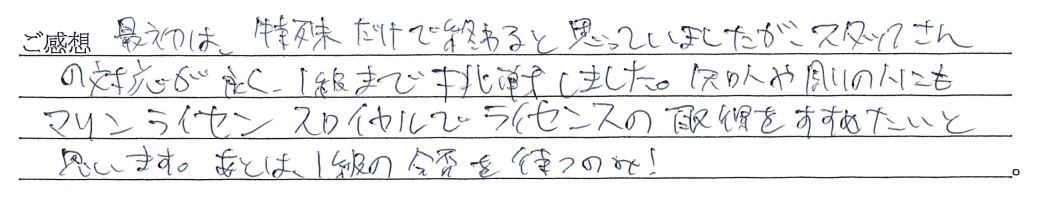 ご感想 最初は、特殊だけで終わると思っていましたが、スタッフさん
の対応が良く、1級まで挑戦しました。知人や周りの人にも
マリンライセンスロイヤルでライセンスの取得をすすめたいと
思います。あとは、1級の合否を待つのみ!